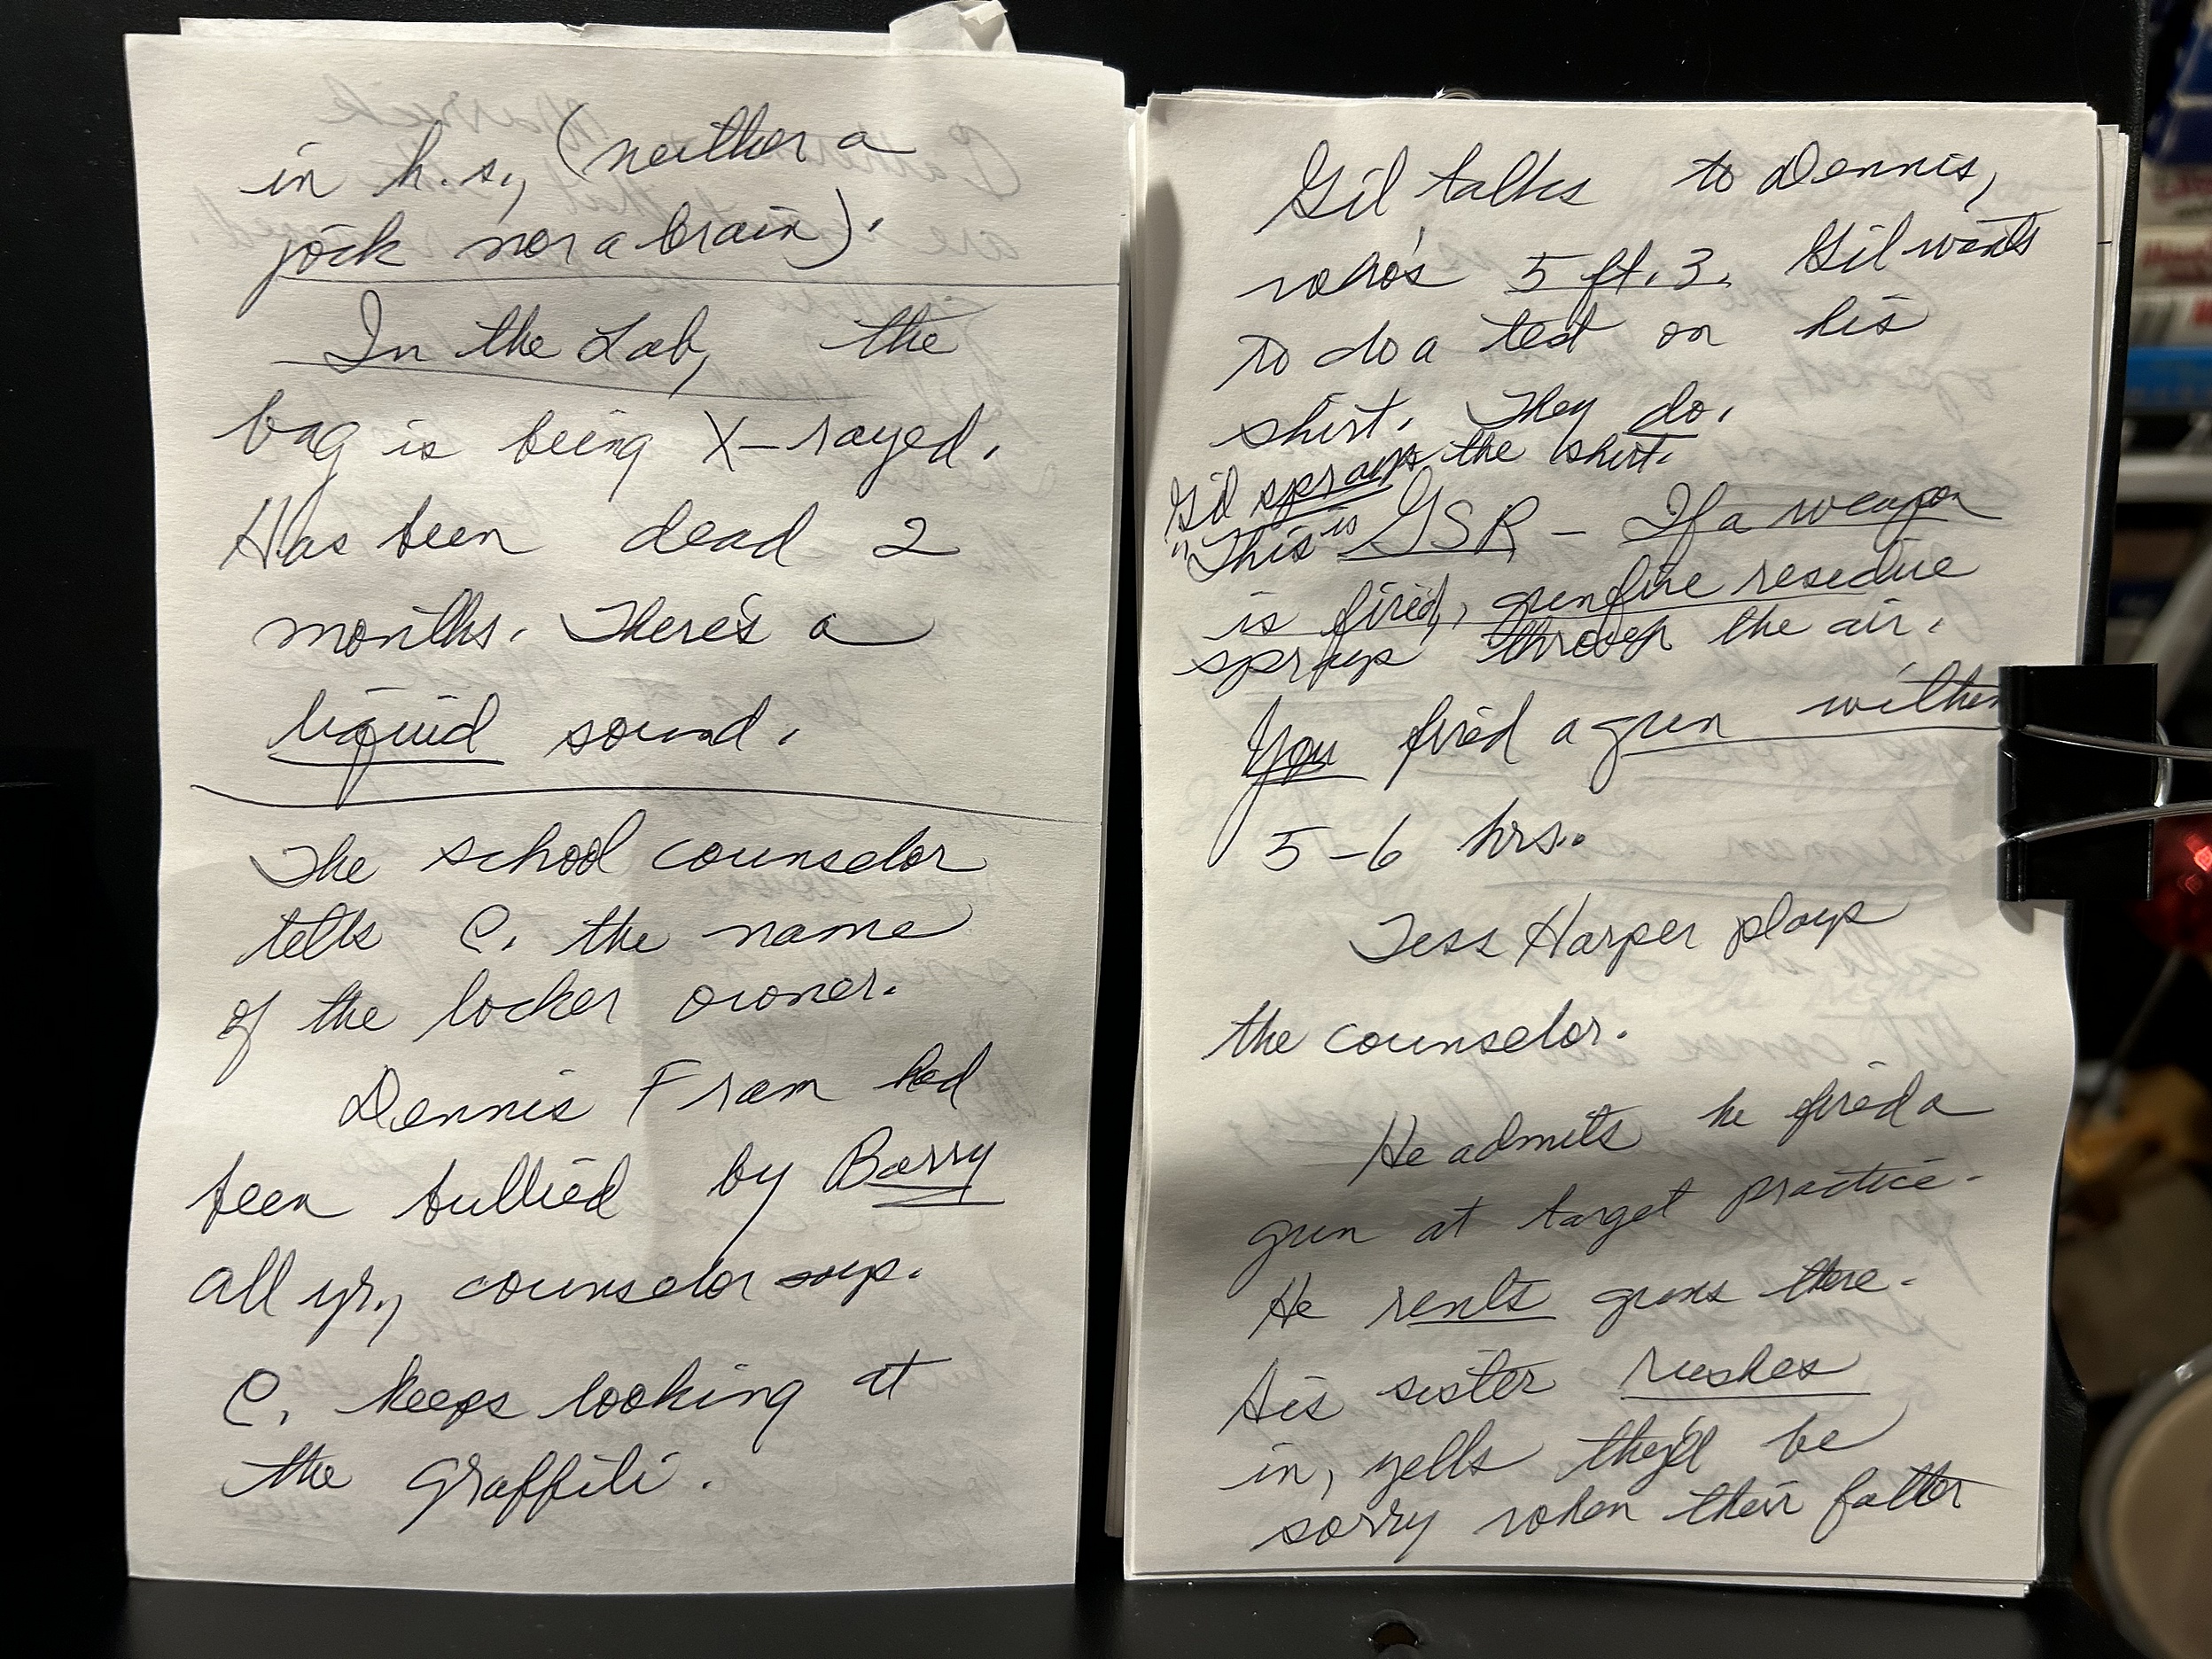 in h.s., (neither a
jock nor a brain).
In the Lab, the
bag is being X-rayed.
Has been dead 2
months. There's a
liquid sound.
The school counselor
tells C. the name
of the locker owner.
Dennis Fram had
been bullied by Barry
all yr., counselor says.
C. keeps looking at
the graffiti.
Gil talks to Dennis,
who's 5 ft. 3. Gil wants
to do a test on his
shirt. They do.
Gil sprays the shirt.
"This is GSR - If a weapon
is fired, gunfire residue
sprays through the air.
You fired a gun within
5-6 hrs.
Tess Harper plays
the counselor.
He admits he fired a
gun at target practice.
He rents guns there.
His sister rushes
in, yells they'd be
sorry when their father